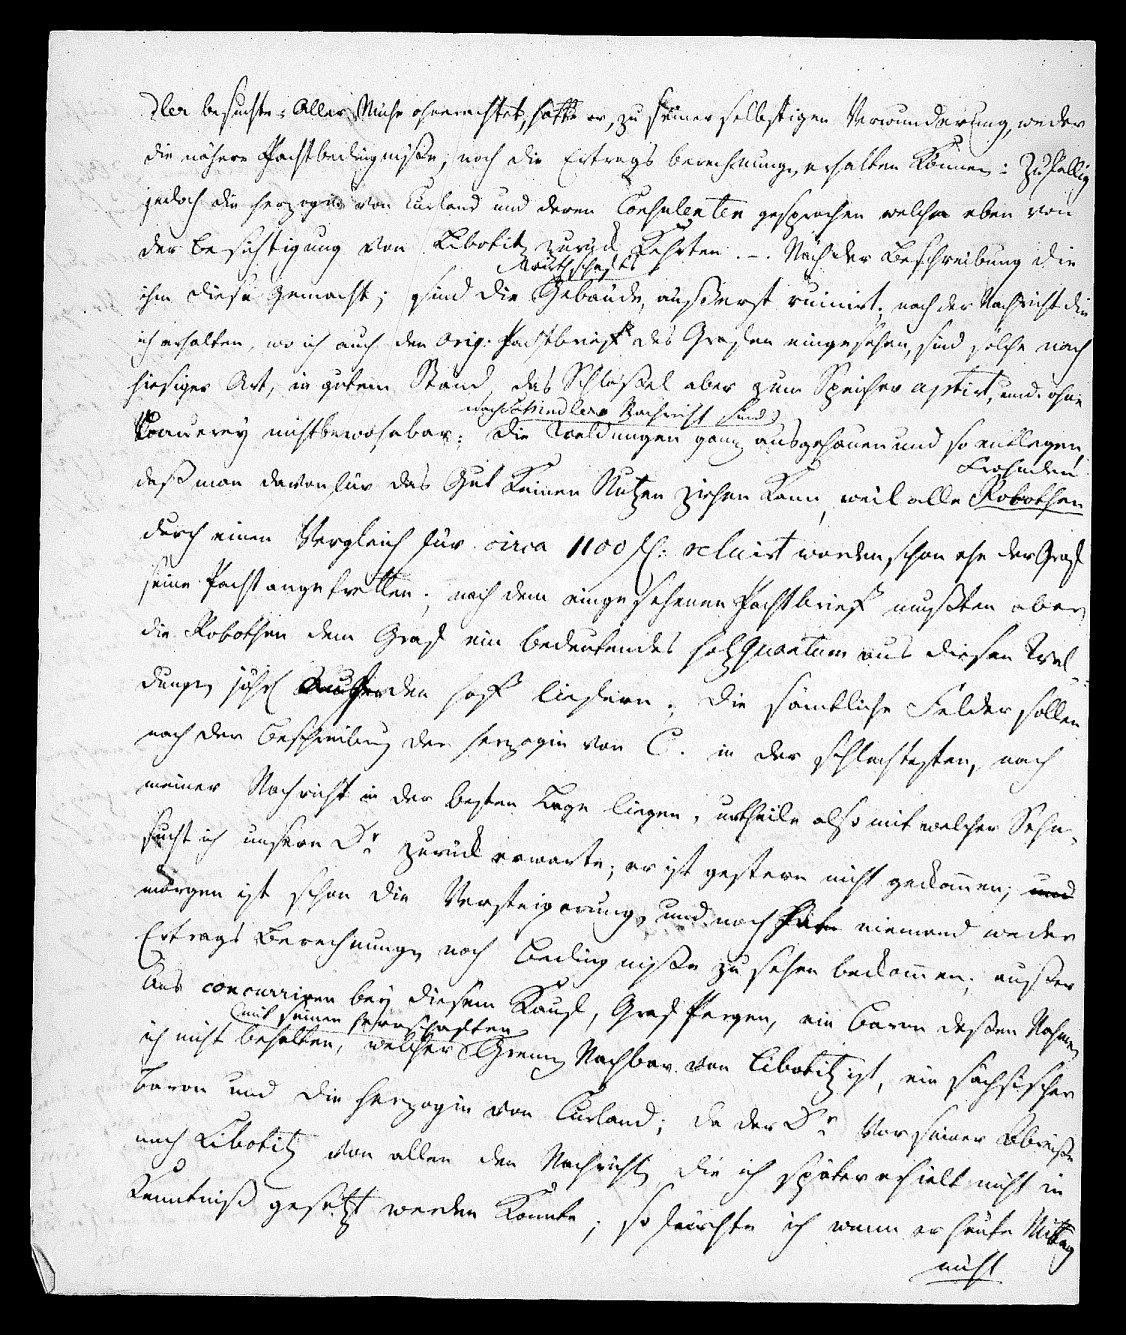 dler besuchte: Aller Mühe ohnerachtet, hatte er, zu seiner selbstigen Verwunderung, weder
die nähere Pachtbedingniße, noch die Ertrags berechnung erhalten können: Zufällig
jedoch die Herzogin von Curland und deren Consulenten gesprochen welche eben von
der Besichtigung von Libotitz zurück kehrten. –. Nach der Beschreibung die
Wirthschafts
ihm diese gemacht; sind die Gebäude, äußerst ruinirt. nach der Nachricht die
ich erhalten, wo ich auch den Orig: Pachtbrief des Grafen eingesehen, sind solche nach
hiesiger Art, in gutem Stand, das Schlößel aber zum Speicher aptirt, und ohne
nach Nachricht sind
Bauerey nicht bewohnbar: die Waldungen ganz ausgehauen und so entlegen,
Frohnden
daß man davon für das Gut keinen Nutzen ziehen kann, weil alle Robothen
durch einen Vergleich für circa 1100 fl: reluirt worden schon ehe der Graf
seine Pacht angetretten; nach dem eingesehenen Pachtbrief mußten aber
die Robothen dem Graf ein bedeutendes Holz Quantum aus diesen Wal
dungen jährl auf den Hoff liefern.; die sämtliche Felder sollen
nach der Beschreibung der Herzogin von C. in der schlechtesten, nach
meiner Nachricht in der besten Lage liegen, urtheile also mit welcher Sehn-
sucht ich unsern Dr zurück erwarte; er ist gestern nicht gekommen; und
morgen ist schon die Versteigerung, und noch hat niemand weder
Ertrags Berechnung noch Bedingniße zu sehen bekommen; außer
uns concurriren bey diesem Kauf, Graf Pergen, ein Baron deßen Nahmen
mit seinen Herrschaften
ich nicht behalten, welcher Grenz Nachbar von Libotitz ist, ein sächsischer
Baron und die Herzogin von Curland; da der Dr vor seiner Abreise
nach Libotitz von allen den Nachricht die ich später erhielt nicht in
Kenntniß gesetzt werden konnte; so fürchte ich wenn er heute Mittag
nicht